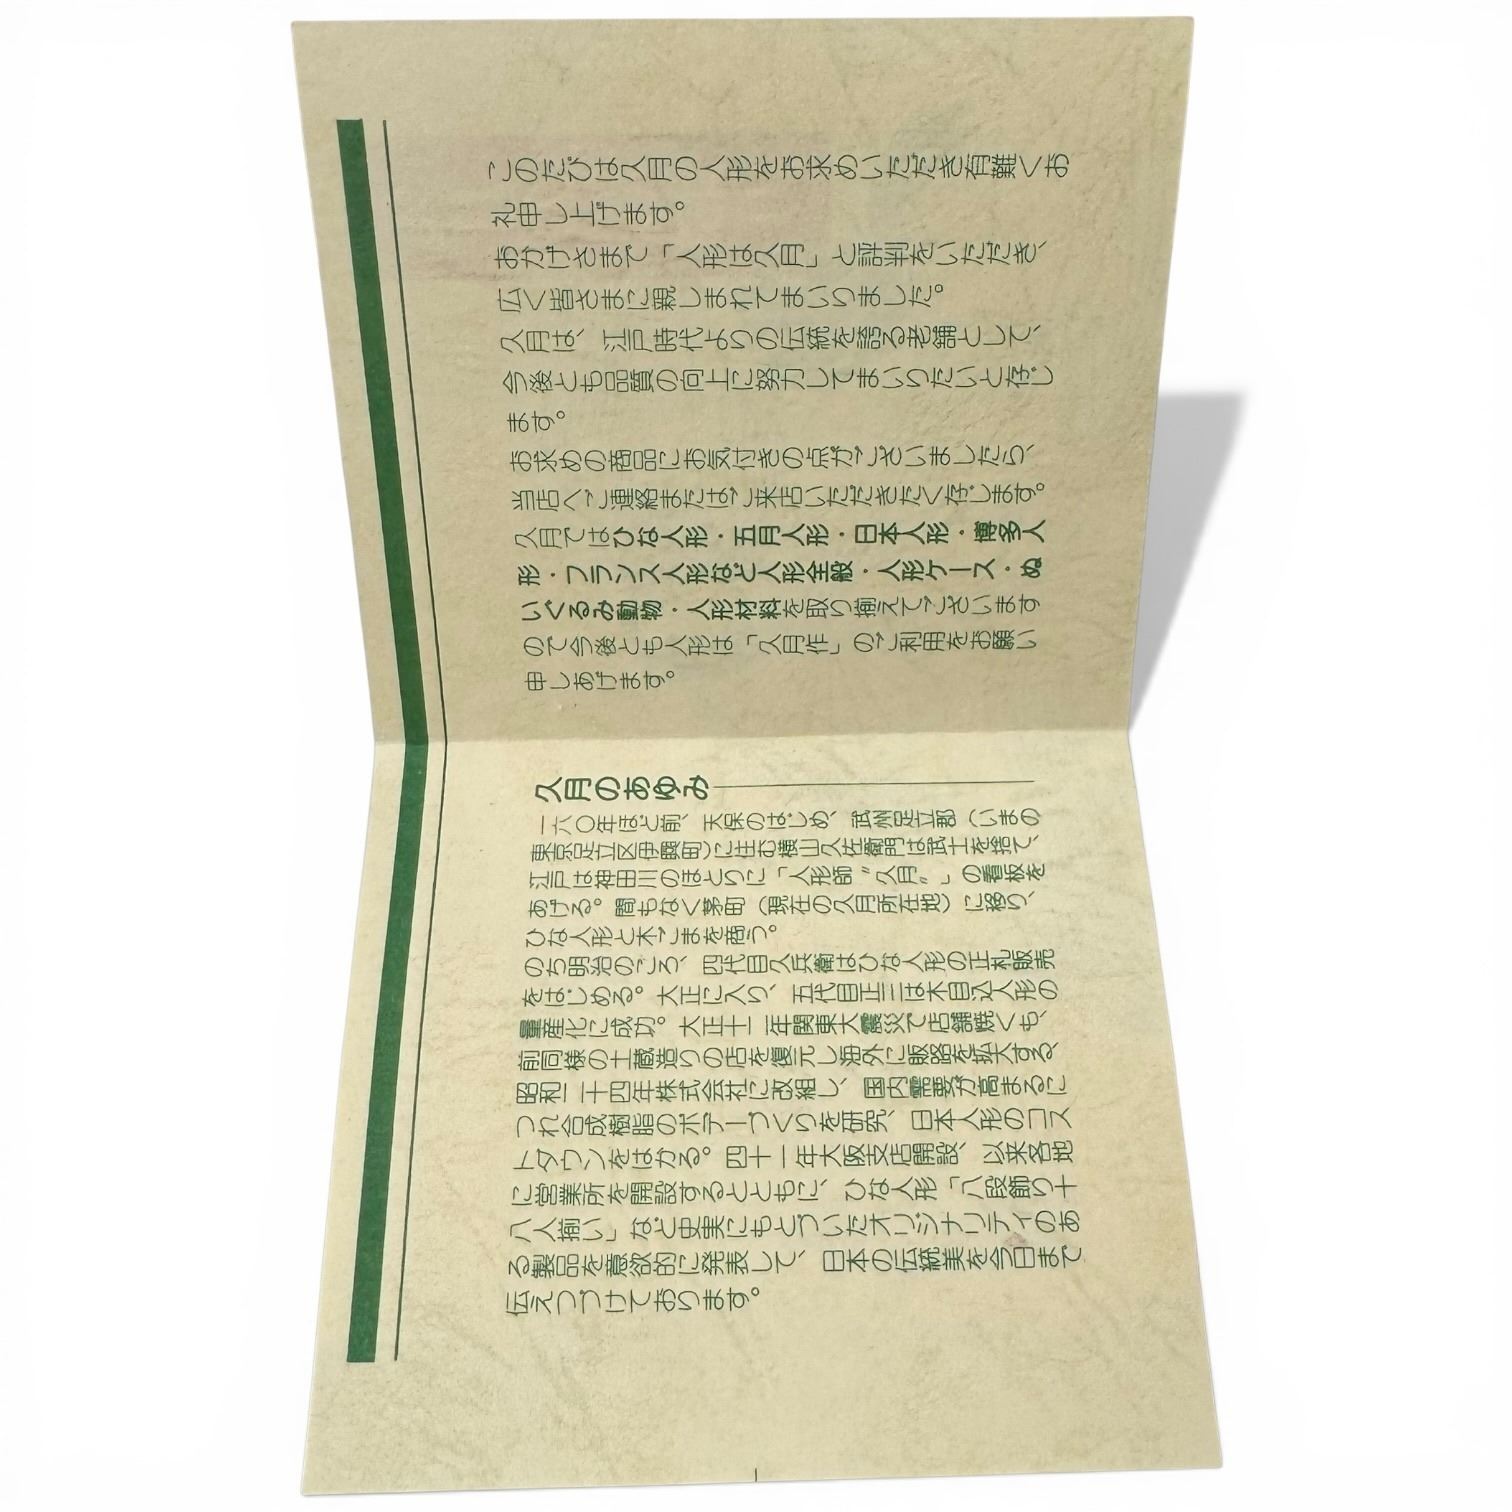 このたびは久月の人形をお求めいただき有難くお
礼申し上げます。
おかげさまで「人形は久月」と評判をいただき、
広く皆さまに親しまれてまいりました。
久月は、江戸時代よりの伝統を誇る老舗として、
今後とも品質の向上に努力してまいりたいと存じ
ます。
お求めの商品にお気付きの点がございましたら、
当店へご連絡またはご来店いただきたく存じます。
久月ではひな人形・五月人形・日本人形・博多人
形・フランス人形など人形全般・人形ケース・ぬ
いぐるみ動物・人形材料を取り揃えてございます
ので今後とも人形は「久月作」のご利用をお願い
申しあげます。
久月のあゆみ
一六〇年ほど前、天保のはじめ、武州足立郡（いまの
東京足立区伊興町）に住む横山久佐衛門は武士を捨て、
江戸は神田川のほとりに「人形師〝久月〟」の看板を
あげる。間もなく茅町（現在の久月所在地）に移り、
ひな人形と木ごまを商う。
のち明治のころ、四代目久兵衛はひな人形の正札販売
をはじめる。大正に入り、五代目正三は木目込人形の
量産化に成功。大正十二年関東大震災で店舗焼くも、
前同様の土蔵造りの店を復元し海外に販路を拡大する、
昭和二十四年株式会社に改組し、国内需要が高まるに
つれ合成樹脂のボデーづくりを研究、日本人形のコス
トダウンをはかる。四十一年大阪支店開設、以来各地
に営業所を開設するとともに、ひな人形「八段飾り十
八人揃い」など史実にもとづいたオリジナリティのあ
る製品を意欲的に発表して、日本の伝統美を今日まで
伝えつづけております。